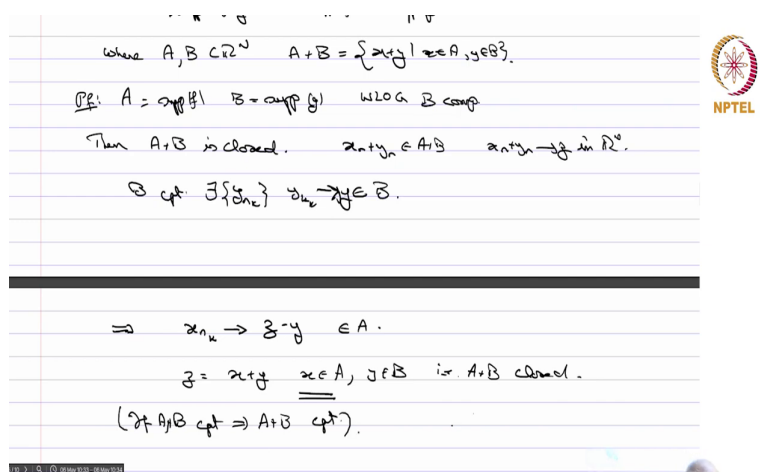 where A, B ⊂ ℝ^N A+B = {x+y | x∈A, y∈B}.
Pf: A = supp(f) B = supp(g) WLOG B comp
Then A+B is closed. xₙ+yₙ ∈ A+B xₙ+yₙ → z in ℝ^N.
B cpt. ∃{y_{n_k}} y_{n_k} → y ∈ B.
⇒ x_{n_k} → z-y ∈ A.
z = x+y x∈A, y∈B i.e. A+B closed.
(If A, B cpt ⇒ A+B cpt.).
NPTEL